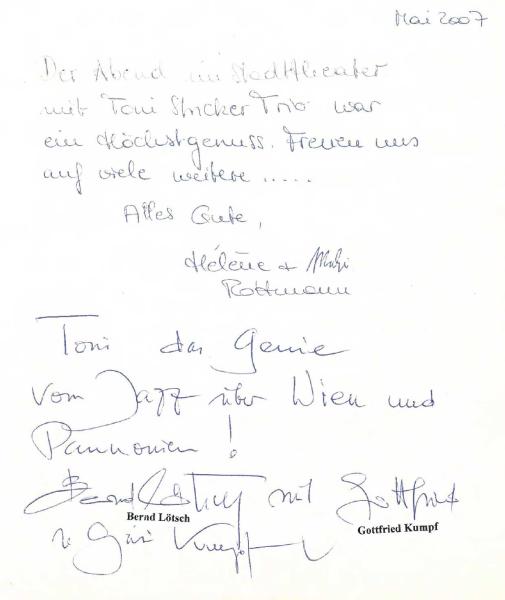 Mai 2007
Der Abend im Stadttheater
mit Toni Stricker Trio war
ein Höchstgenuss. Freuen uns
auf viele weitere .....
Alles Gute,
Hélène +
Rottmann
Toni das Genie
vom Jazz über Wien und
Pannonien!
Bernd Lötsch mit Gottfried
Bernd Lötsch
Gottfried Kumpf
Kumpf